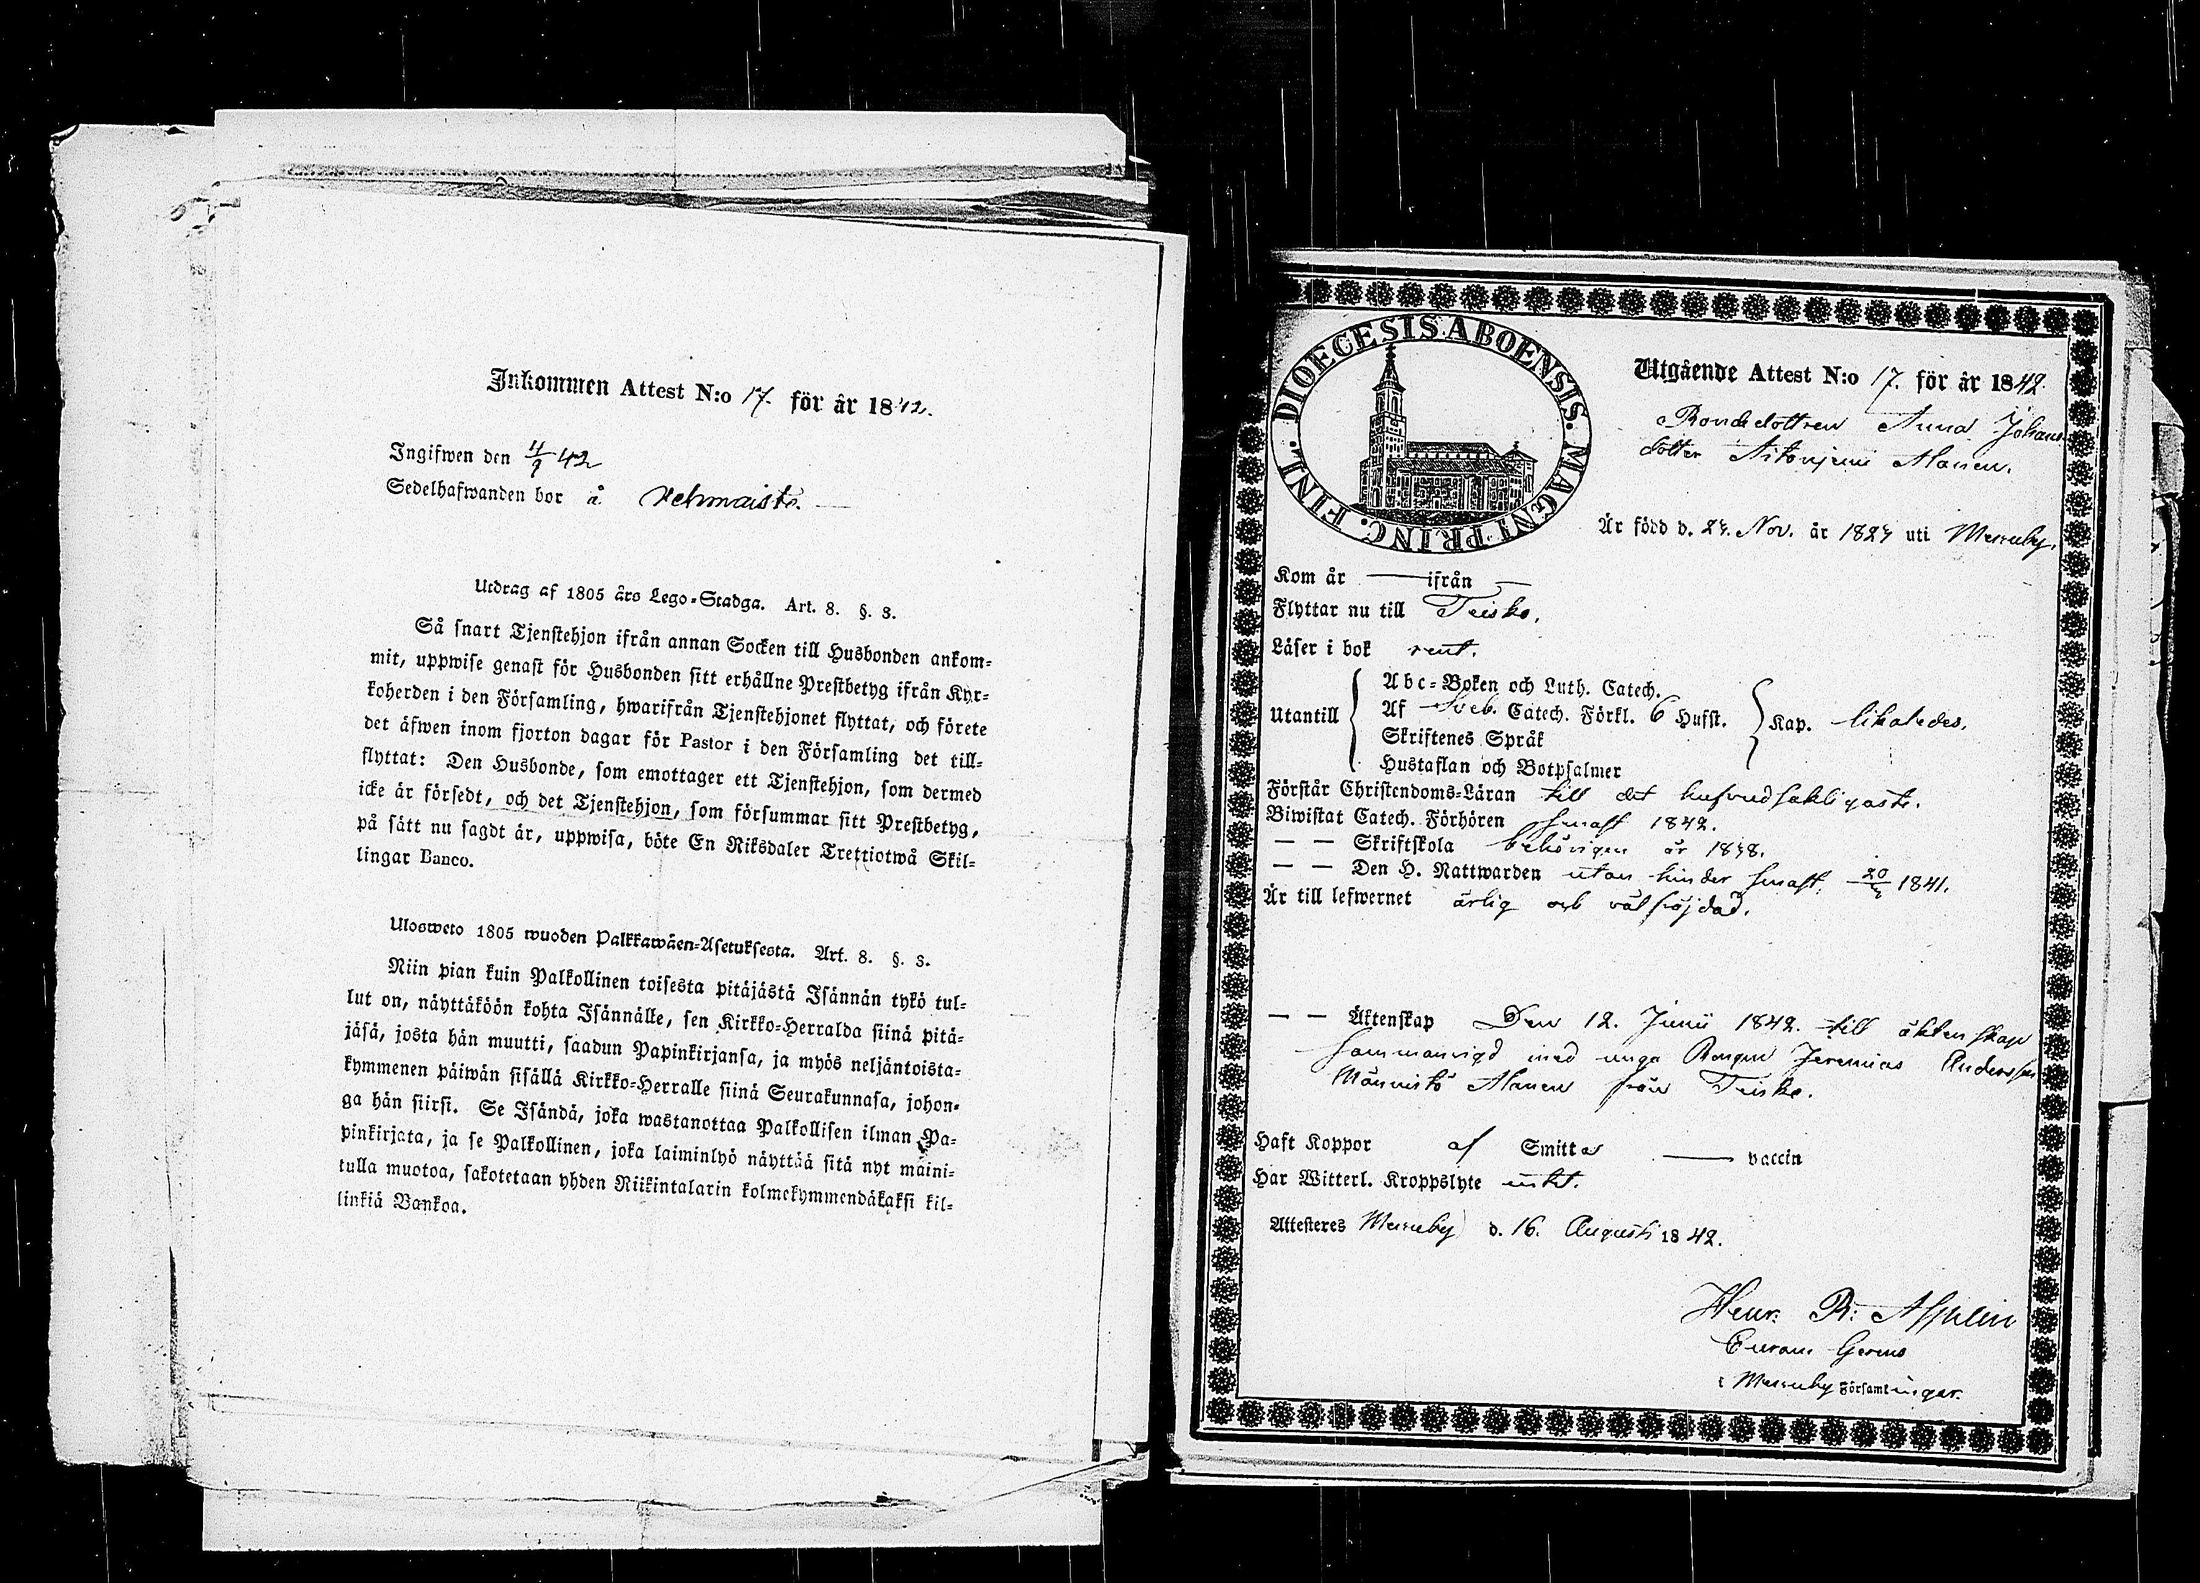 Inkommen Attest N:o 17. för år 1842.
Ingifwen den 4/9 42
Sedelhafwanden bor å Vehmaisto.
Utdrag af 1805 års Lego-Stadga. Art. 8. §. 3.
Så snart Tjenstehjon ifrån annan Socken till Husbonden ankom-
mit, uppwise genast för Husbonden sitt erhållne Prestbetyg ifrån Kyr-
koherden i den Församling, hwarifrån Tjenstehjonet flyttat, och förete
det äfwen inom fjorton dagar för Pastor i den Församling det till-
flyttat: Den Husbonde, som emottager ett Tjenstehjon, som dermed
icke är försedt, och det Tjenstehjon, som försummar sitt Prestbetyg,
på sätt nu sagdt är, uppwisa, böte En Riksdaler Trettiotwå Skil-
lingar Banco.
Ulosweto 1805 wuoden Palkkawäen-Asetuksesta. Art. 8. §. 3.
Niin pian kuin Palkollinen toisesta pitäjästä Isännän tykö tul-
lut on, näyttäköön kohta Isännälle, sen Kirkko-Herralda siinä pitä-
jäsä, josta hän muutti, saadun Papinkirjansa, ja myös neljäntoista-
kymmenen päiwän sisällä Kirkko-Herralle siinä Seurakunnasa, johon-
ga hän siirsi. Se Isändä, joka wastanottaa Palkollisen ilman Pa-
pinkirjata, ja se Palkollinen, joka laiminlyö näyttää sitä nyt maini-
tulla muotoa, sakotetaan yhden Riikintalarin kolmekymmendäkaksi kil-
linkiä Bankoa.
DIOECESIS ABOENSIS. MAGNI PRINC. FINL.
Utgående Attest N:o 17. för år 1842.
Bondedottren Anna Johans
dotter Alanen.
Är född d. 24. Nov. år 1824 uti Messuby.
Kom år — ifrån —
Flyttar nu till Teisko.
Läser i bok rent.
Abc-Boken och Luth. Catech.
Utantill Af Sveb. Catech. Förkl. 6 Hufst. Kap. likaledes.
Skriftenes Språk
Hustaflan och Botpsalmer
Förstår Christendoms-Läran till det hufvudsakligaste.
Biwistat Catech. Förhören senast 1842.
— — Skriftskola behörigen år 1838.
— — Den H. Nattwarden utan hinder senast 1841.
Är till lefwernet ärlig och välfrejdad.
— — Äktenskap Den 12. Junii 1842. till äktenskap
sammanvigd med unga Bonden Jeremias Andersson
Männistö Alanen från Teisko.
Haft Koppor af Smitta — vaccin
Har Witterl. Kroppslyte intet.
Attesteres Messuby d. 16. Augusti 1842.
Henr. R: Asplin
i Messuby Församlingar.